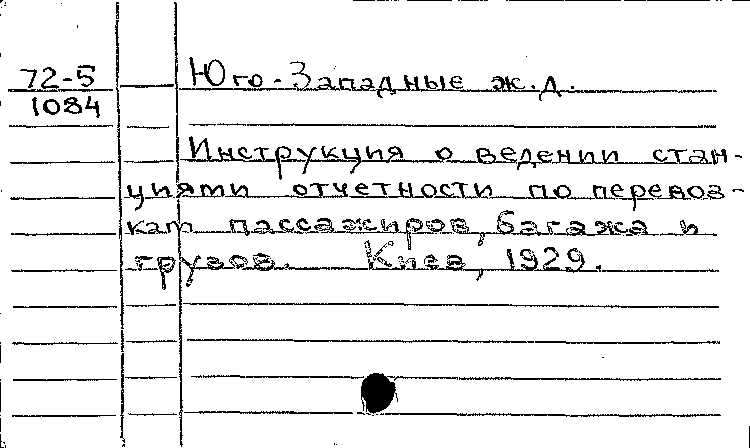 72-5 Юго-Западные ж.д.
1084
Инструкция о ведении стан-
циями отчетности по перевоз-
кам пассажиров, багажа и
грузов. Киев, 1929.